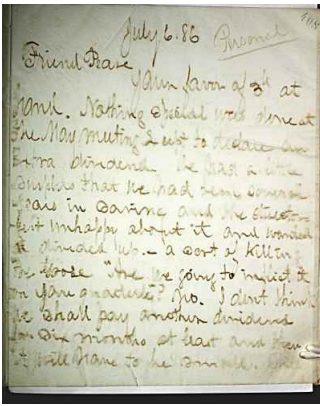 July 6. 86
Personal
Friend Pease
Your favor of 3d at
hand. Nothing special was done at
the May meeting except to declare an
Extra dividend. We had a little
that we had been several
years in saving and the directors
felt unhappy about it and wanted
it divided up. - a sort of killing
the goose "Are we going to inflict it
on you gradually"? No. I don't think
we shall pay another dividend
for six months at least and then
it will have to be small.